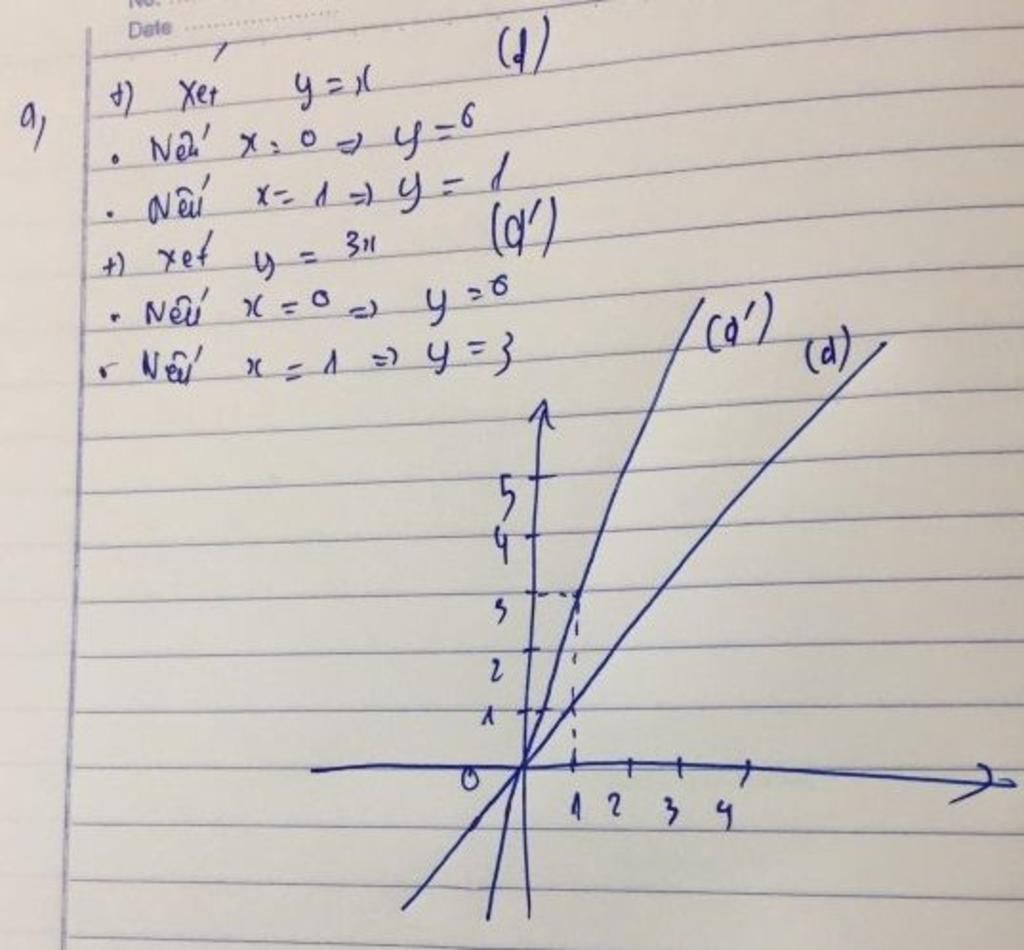 No.
Date
a,
+) Xét y = x (d)
. Nếu x = 0 => y = 0
. Nếu x = 1 => y = 1
+) Xét y = 3x (d')
. Nếu x = 0 => y = 0
. Nếu x = 1 => y = 3
(d') (d)
5
4
3
2
1
0 1 2 3 4